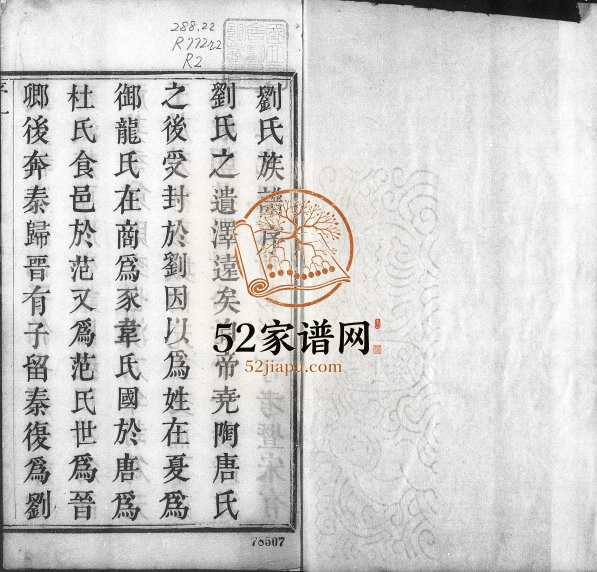 288.22
R772n2
R2
劉氏族譜序
劉氏之遺澤遠矣 帝堯陶唐氏
之後受封於劉因以為姓在夏為
御龍氏在商為豕韋氏國於唐為
杜氏食邑於范又為范氏世為晉
卿後奔秦歸晉有子留秦復為劉
序
52家谱网
52jiapu.com
78507